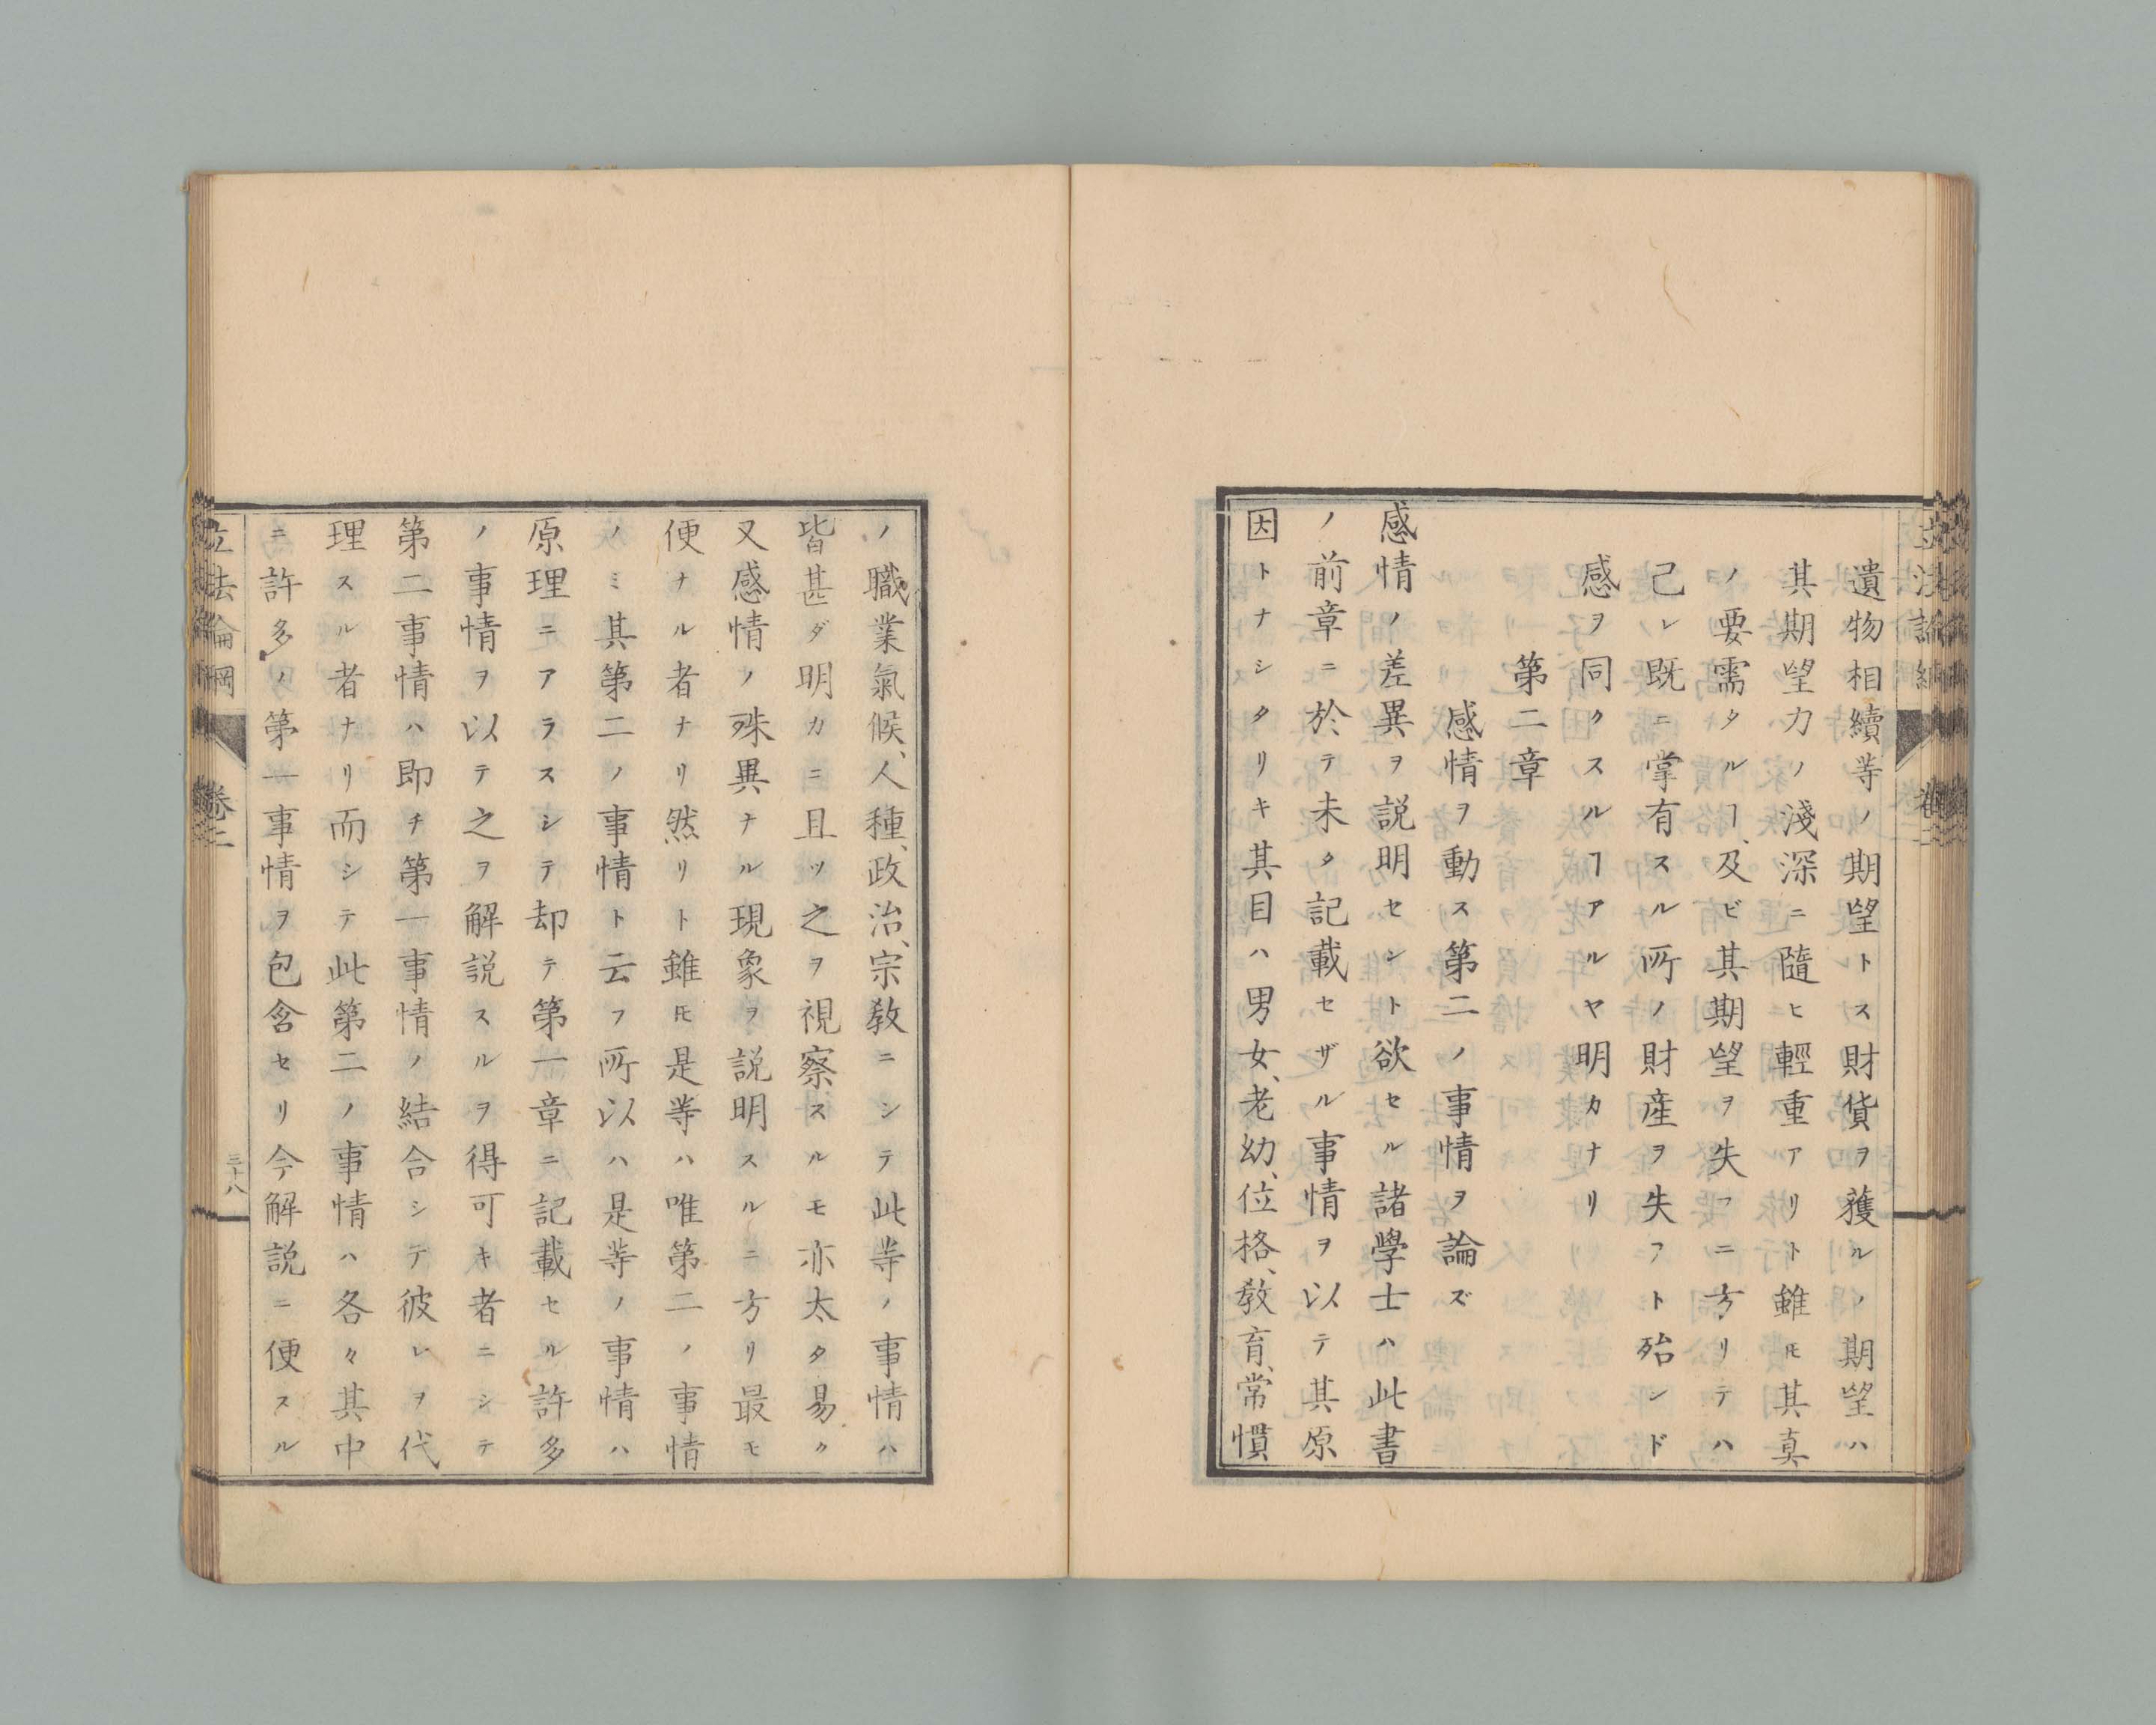 遺物相續等ノ期望トス財貨ヲ獲ルノ期望ハ
其期望力ノ淺深ニ隨ヒ輕重アリト雖𪜈其真
ノ要需タルヿ、及ビ其期望ヲ失フニ方リテハ
己レ既ニ掌有スル所ノ財産ヲ失フト殆ンド
感ヲ同クスルヿアルヤ明カナリ
第二章
感情ヲ動ス第二ノ事情ヲ論ズ
感情ノ差異ヲ説明セント欲セル諸學士ハ此書
ノ前章ニ於テ未タ記載セザル事情ヲ以テ其原
因トナシタリキ其目ハ男女、老幼、位格、教育、常慣
ノ職業氣候、人種、政治、宗教ニシテ此等ノ事情ハ
皆甚ダ明カニ且ツ之ヲ視察スルモ亦太タ易ク
又感情ノ殊異ナル現象ヲ説明スルニ方リ最モ
便ナル者ナリ然リト雖𪜈是等ハ唯第二ノ事情
ノミ其第二ノ事情ト云フ所以ハ是等ノ事情ハ
原理ニアラスシテ却テ第一章ニ記載セル許多
ノ事情ヲ以テ之ヲ解説スルヲ得可キ者ニシテ
第二事情ハ即チ第一事情ノ結合シテ彼レヲ代
理スル者ナリ而シテ此第二ノ事情ハ各々其中
ニ許多ノ第一事情ヲ包含セリ今解説ニ便スル
立法論綱
卷二
三十八